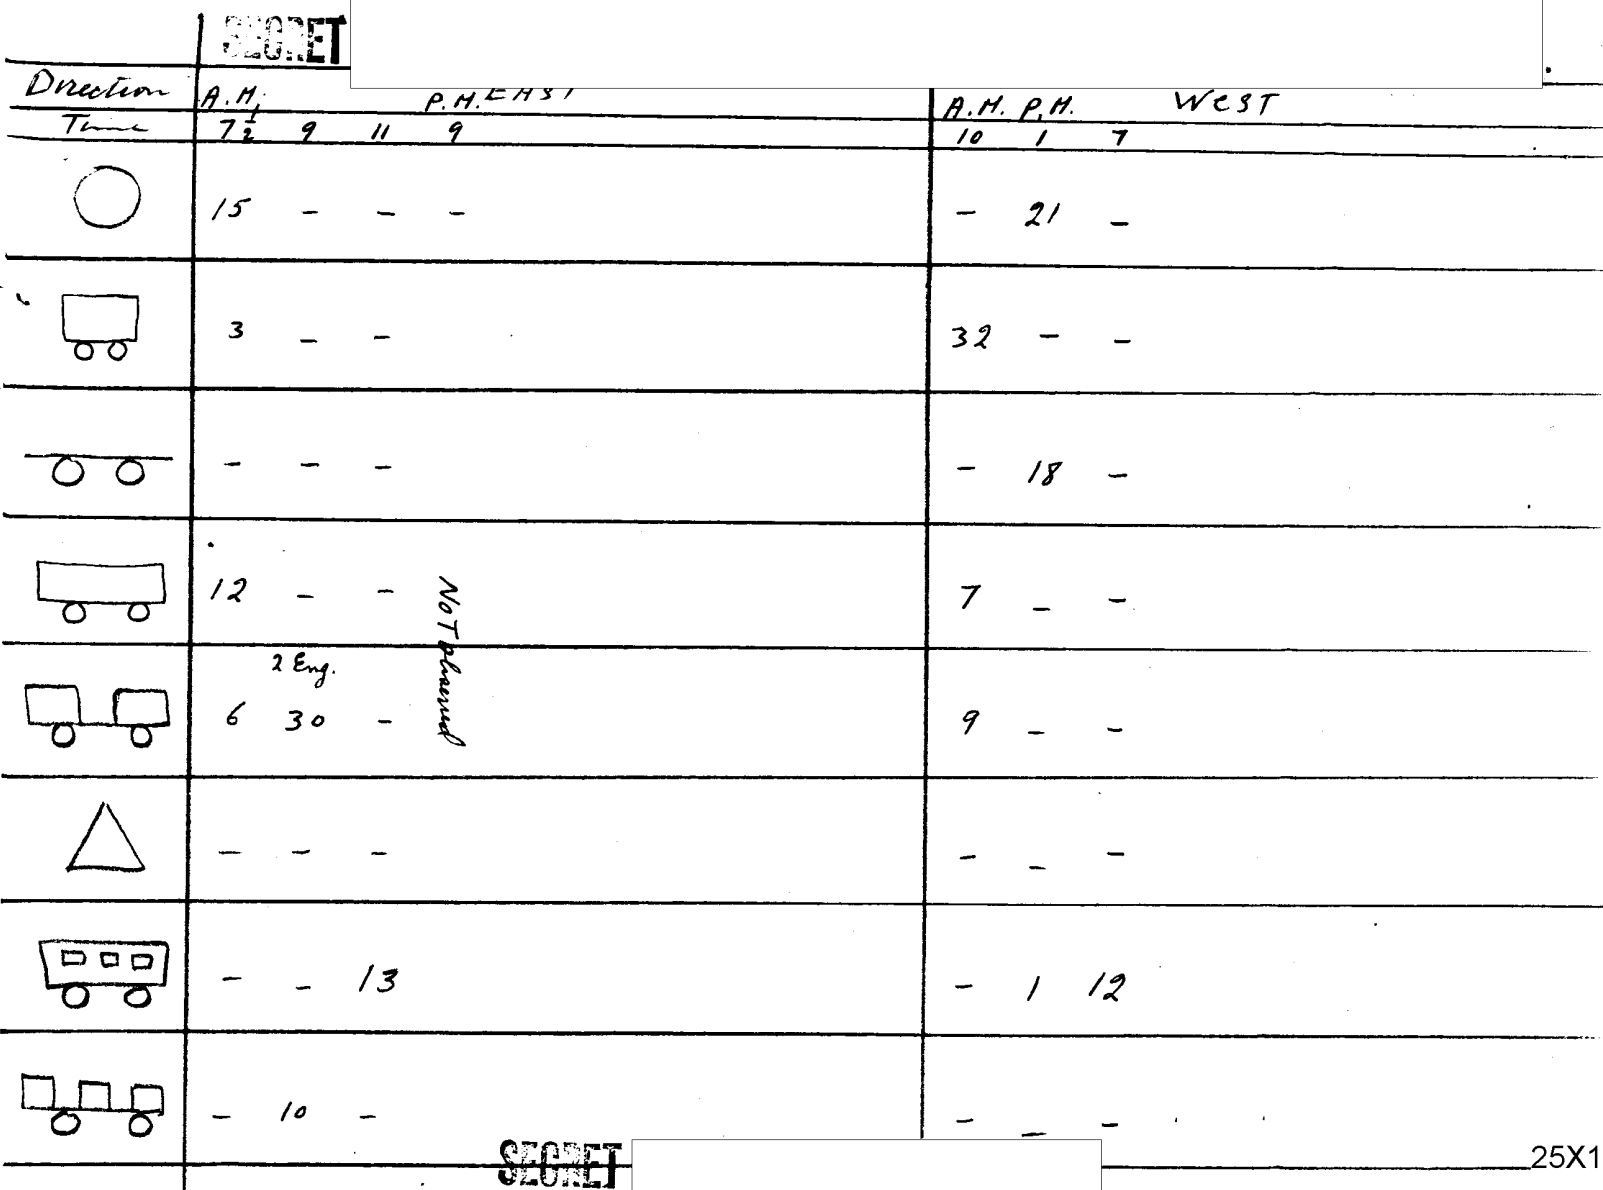 SECRET
Direction A.M. P.M. EAST A.M. P.M. WEST
Time 7½ 9 11 9 10 1 7
15 - - - - 21 -
3 - - 32 - -
- - - - 18 -
12 - - 7 - -
Not observed
2 Eng.
6 30 - 9 - -
- - - - - -
- - 13 - 1 12
- 10 - - - -
SECRET
25X1